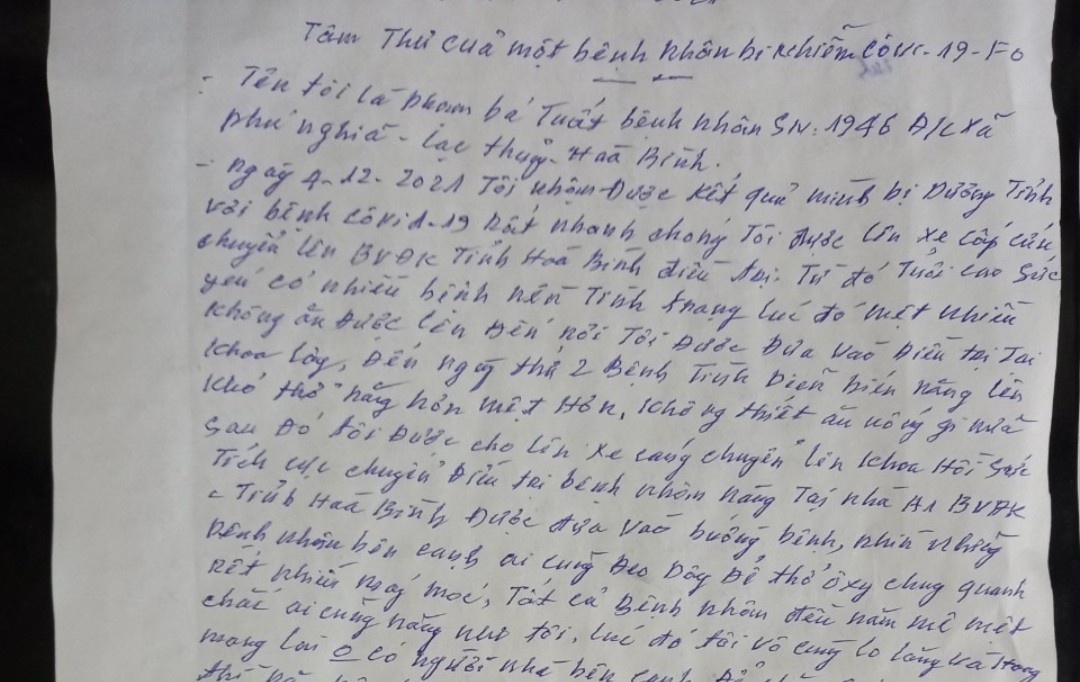 Tâm Thư của một bệnh nhân bị nhiễm Covic-19-F0
- Tên tôi là phạm bá Tuất bệnh nhân SN: 1946 Đ/c xã
phú nghiã - Lạc thuỷ - Hoà Bình.
- ngày 4-12-2021 Tôi nhận Được kết quả mình bị Dương Tính
với bệnh côvid-19 Rất nhanh chóng Tôi được lên xe cấp cứu
chuyển lên BVĐK Tỉnh Hoà Bình điều trị. Từ đó Tuổi cao Sức
yếu có nhiều bệnh nền Tình trạng lúc đó mệt nhiều
không ăn Được lên Đến nơi Tôi Được Đưa vào Điều trị Tại
khoa lây, Đến ngày thứ 2 Bệnh Tình Diễn biến nặng lên
khó thở nặng hơn mệt Hơn, không thiết ăn uống gì nữa
Sau Đó tôi Được cho lên xe cáng chuyển lên khoa Hồi Sức
Tích cực chuyên Điều trị bệnh nhân nặng Tại nhà A1 BVĐK
- Tỉnh Hoà Bình Được đưa vào buồng bệnh, nhìn những
bệnh nhân bên cạnh ai cũng Đeo Dây Để thở ôxy chung quanh
rất nhiều máy móc, Tất cả Bệnh nhân đều nằm mê mệt
chắc ai cũng nặng như tôi, lúc đó tôi vô cùng lo lắng và Hoang
mang lại 0 có người nhà bên cạnh Để